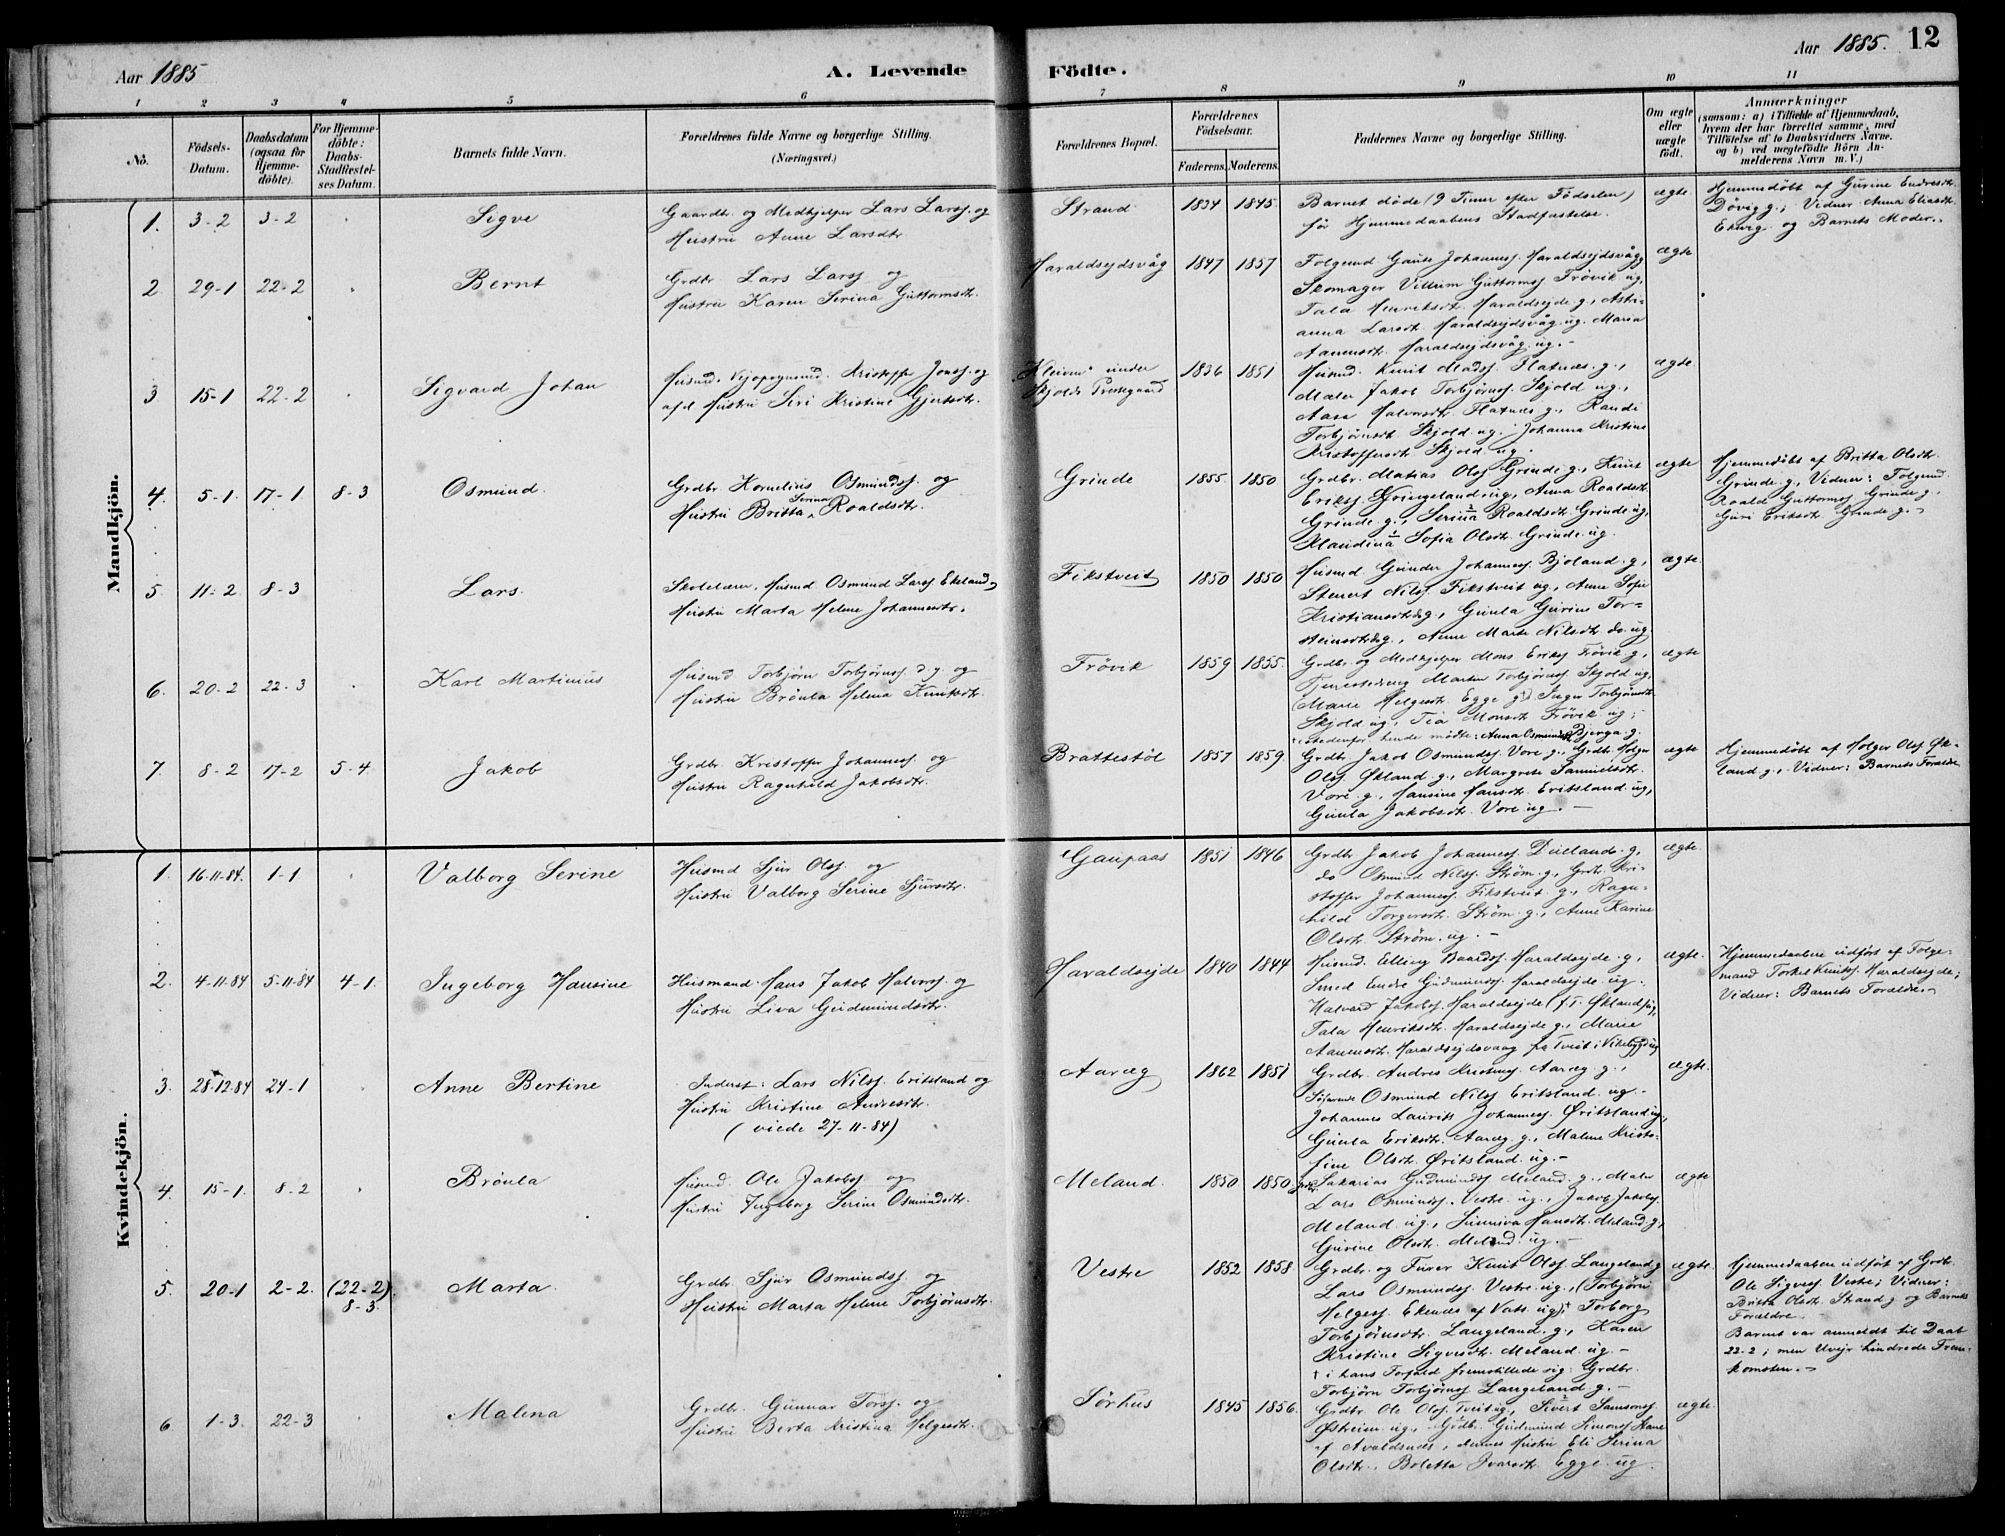 Aar 1885
A. Levende Födte.
Aar 1885. 12
1 2 3 4 5 6 7 8 9 10 11
No.
Födsels-Datum.
Daabsdatum (ogsaa for Hjemme-döbte).
For Hjemme-döbte: Daabs-Stadfæstel-ses Datum.
Barnets fulde Navn.
Forældrenes fulde Navne og borgerlige Stilling. (Næringsvei.)
Forældrenes Bopæl.
Forældrenes Födselsaar.
Faderens. Moderens.
Faddernes Navne og borgerlige Stilling.
Om ægte eller uægte født.
Anmærkninger
(saasom: a) i Tilfælde af Hjemmedaab, hvem der har forrettet samme, med Tilföielse af to Daabsvidners Navne. og b) ved uægtefödte Börn An-melderens Navn m. V.)
Mandkjön.
1. 3-2 3-2 Sigve
Gaardbr. og Medhjelper Lars Larss. og
Hustru Anne Larsdtr.
Strand 1834 1845.
Barnet döde (9 Timer efter Födselen)
før Hjemmedaabens Stadfæstelse.
ægte
Hjemmedöbt af Gurine Endresdtr.
Dövig g.; Vidner Anna Eliasdtr.
og Barnets Moder.
2. 29-1 22-2 Bernt
Grdbr. Lars Larss. og
Hustru Karen Serina Guttormsdtr.
Haraldsejdsvåg 1847 1857
Folgemd Gaute Johanness. Haraldsejdsvåg g.
Skomager Villum Guttormss. Frövik ug,
Tala Henriksdtr. Haraldsejde g., Astri-
anna Larsdtr. Haraldsejdsvåg ug. Maria
Aanensdtr. Haraldsejdsvåg ug.-
ægte
3 15-1 22-2 Sigvard Johan
Kristoffer Jonss. og
Hustru Siri Kristine Gjertsdtr.
"Kleiven" under
Skjolds Prestgaard
1836 1851
Husmd. Knut Madss. Flatnes g.,
Maler Jakob Torbjörnss. Skjold ug.,
Aasa Halvorsdtr. Flatnes g., Randi
Torbjörnsdtr. Skjold ug. Johanna Kristine
Kristoffersdtr. Skjold ug.
ægte
4. 5-1. 17-1 8-3 Osmund.
Grdbr. Kornelius Osmundss. og
Hustru Britta Serina Roaldsdtr.
Grinde 1855 1850
Grdbr. Matias Olss. Grinde g., Knut
Erikss. Gringeland ug, Anna Roaldsdtr.
Grinde g., Serina Roaldsdtr. Grinde ug,
Klandina Sofia Olsdtr. Grinde ug.
ægte
Hjemmedöbt af Britta Olsdtr.
Grinde g., Vidner: Folgemd.
Roald Guttormss. Grinde g.,
Guri Eriksdtr. Grinde g.-
5 11-2 8-3 Lars.
Skolelærer, Husmd Osmund Larss. Ekeland og
Hustru Marta Helene Johannesdtr.
Fikstveit 1850 1850
Husmd. Gunder Johanness. Bjoland g.,
Nilss. Fikstveit ug, Anne Sofie
Kristiansdtr. g, Gunla Gurine Tor-
steinsdtr. g., Anne Marte Nilsdtr. do. ug
ægte
6. 20-2 22-3 Karl Martinius
Husmd Torbjörn Torbjörnss. d. y. og
Hustru Brönla Helena Knutsdtr.
Frövik 1859 1855.
Grdbr. og Medhjelper Mons Erikss. Frövik g.,
Martin Torbjörnss. Skjold ug,
(Marie Helgesdtr. Egge g.)† Inga Torbjörnsdtr.
Skjold ug, Tea Monsdtr. Frövik ug;
† istedenfor hende mödte: Anna Osmundsdtr. Bjerga g.
ægte
7. 8-2 17-2 5-4 Jakob
Grdbr. Kristoffer Johanness. og
Hustru Ragnhild Jakobsdtr.
Brattestöl 1857 1859
Grdbr. Jakob Osmundss. Vore g., Grdbr. Holger
Olss. Økland g., Margrete Samuelsdtr.
Vore g., Hansine Hansdtr. Eritsland ug,
Gunla Jakobsdtr. Vore ug.-
ægte
Hjemmedöbt af Holger Olss. Øk-
land g., Vidner: Barnets Forældre
Kvindekjön.
1. 16-11-84. 1-1 Valborg Serine
Husmd Sjur Olss. og
Hustru Valborg Serine Sjursdtr.
Gaupaas 1851 1846
Grdbr Jakob Johanness. Dueland g,
do Osmund Nilss. Ström g, Grdbr. Kri-
stoffer Johanness. Fikstveit g., Ragn-
hild Torgersdtr. Ström g., Anne Karine
Olsdtr. Ström ug.-
ægte.
2. 4-11-84 5-11-84 4-1. Ingeborg Hansine
Husmand Hans Jakob Halvorss. og
Hustru Liva Gudmundsdtr.
Haraldsejde 1840 1844
Husmd. Elling Baardss. Haraldsejde g,
Smed Endre Gudmundss. Haraldsejde ug.
Halvard Jakobss. Haraldsejde (f. T. Økland) ug,
Tala Henriksdtr. Haraldsejde g., Marie
Aanensdtr. Haraldsejdsvaag fra Tveit i Vikebygd ug
ægte.
Hjemmedaaben udfört af Folge-
mand Torkel Knutss. Haraldsejde;
Vidner: Barnets Forældre.-
3. 28-12-84 24-1 Anne Bertine
Inderst: Lars Nilss. Eritsland og
Hustru Kristine Andresdtr.
(viede 27-11-84)
Aaræg 1862 1851
Grdbr. Andres Aaræg g.,
Osmund Nilss. Eritsland ug-
Johannes Laurits Johanness. Øritsland ug,
Gunla Eriksdtr. Aaræg g., Malene Kristo-
fine Olsdtr. Øritsland ug.-
ægte.
4. 15-1. 8-2 Brönla
Husmd. Ole Jakobss. og
Hustru Ingeborg Serine Osmundsdtr.
Meland. 1850 1850
Sakarias Gudmundss. Meland g., Maler
Lars Osmundss. Vestre ug., Jakob Jakobss.
Meland ug, Sunniva Hansdtr. Meland g.,
Gurine Olsdtr. Meland ug.-
ægte
5. 20-1 2-2. (22-2) 8-3. Marta.
Grdbr. Sjur Osmundss. og
Hustru Marta Helene Torbjörnsdtr.
Vestre 1852 1858
Grdbr. og Furer Knut Olss. Langeland g
Lars Osmundss. Vestre ug., (Torbjörn
Helgess. Ekenes af Vats ug)† Torborg
Torbjörnsdtr. Langeland g., Karen
Kristine Sigvesdtr. Meland ug.-
† i hans Forfald fremstillede sig: Grdbr.
Torbjörn Torbjörnss. Langeland g.-
ægte.
Hjemmedaaben udfört af Grdbr.
Ole Sigvess. Vestre; Vidner:
Britta Olsdtr. Strand g og Barnets
Forældre.
Barnet var anmeldt til Daab
22-2; men Uvejr hindrede Frem-
komsten.-
6 1-3. 22-3 Malena
Grdbr. Gunnar Torss. og
Hustru Berta Kristina Helgesdtr.
Sörhus 1845 1856.
Grdbr. Ole Olss. Tveit ug, Sivert Samsonss.
Østreim ug., Grdbr. Gudmund Simonss.
af Avaldsnes, dennes Hustru Eli Serina
Olsdtr., Boletta Ivarsdtr. Egge ug.
ægte.